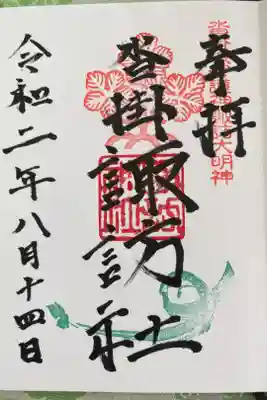 奉拝
大明神
沓掛諏訪社
令和二年八月十四日